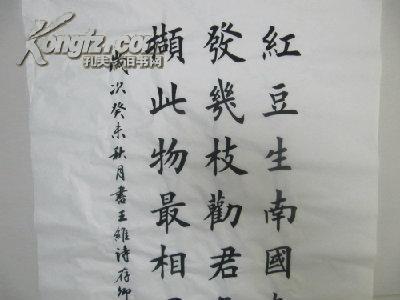 紅豆生南國
發幾枝勸君
擷此物最相
歲次癸未秋月書王維詩
Kongfz.com
孔夫子旧书网